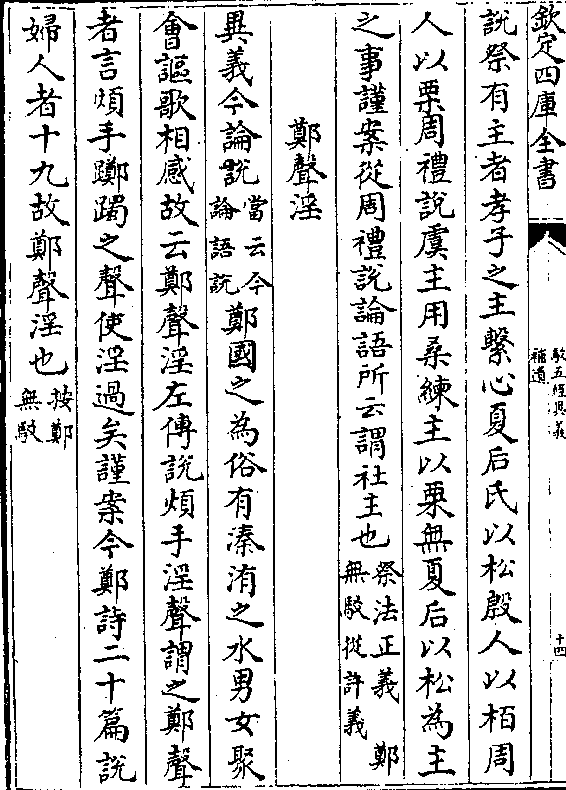 欽定四庫全書
駁五經異義
補遺
十四
說祭有主者孝子之主繫心夏后氏以松殷人以栢周
人以栗周禮說虞主用桑練主以栗無夏后以松為主
之事謹案從周禮說論語所云謂社主也祭法正義鄭
無駁從許義
鄭聲淫
異義今論說當云今
論語說鄭國之為俗有溱洧之水男女聚
會謳歌相感故云鄭聲淫左傳說煩手淫聲謂之鄭聲
者言煩手躑躅之聲使淫過矣謹案今鄭詩二十篇說
婦人者十九故鄭聲淫也按鄭
無駁